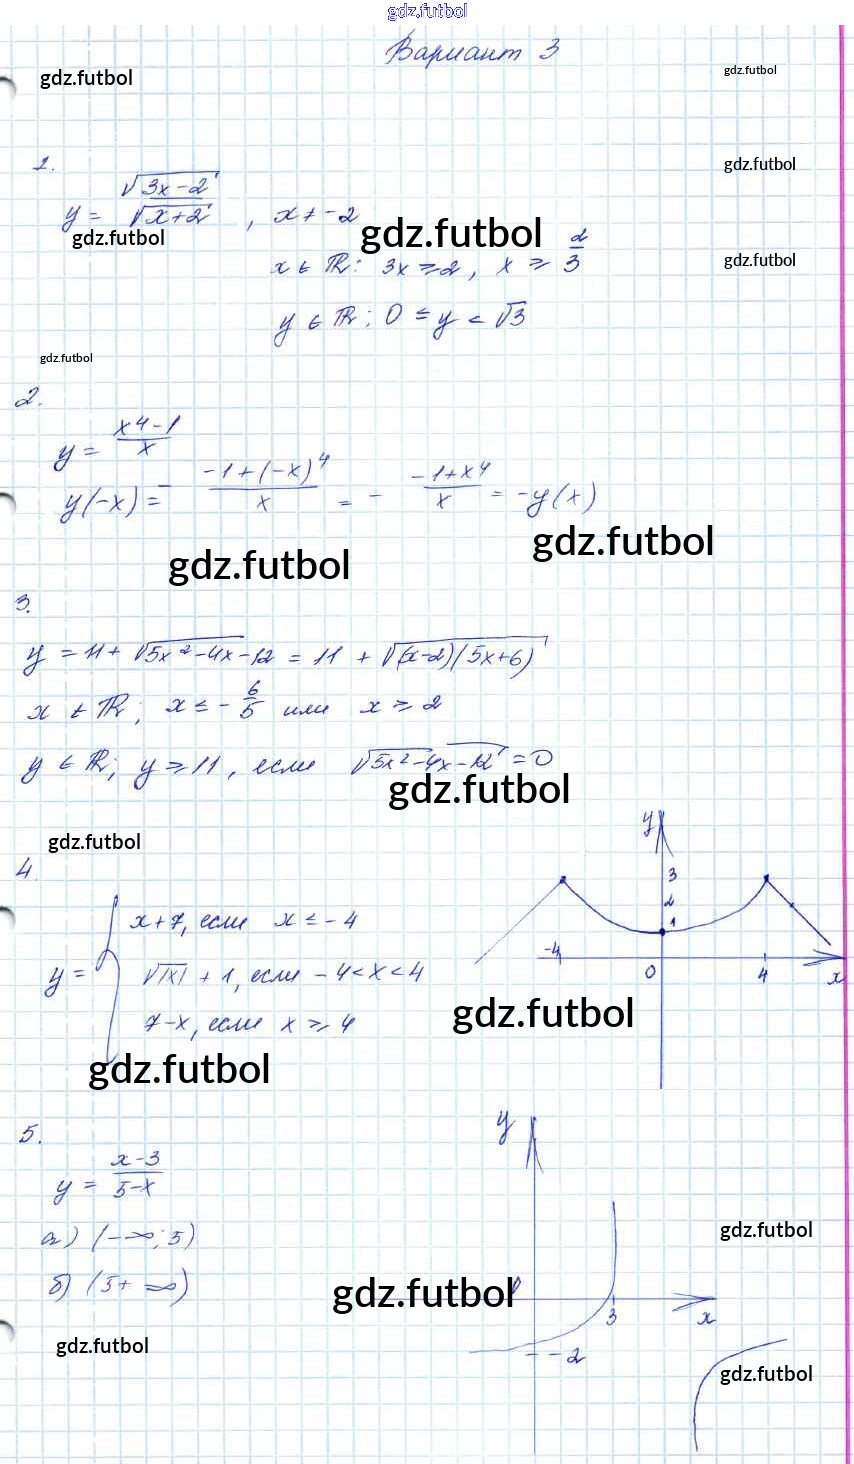 gdz.futbol
Вариант 3
gdz.futbol
gdz.futbol
1.
gdz.futbol
y = √(3x-2) / √(x+2), x ≠ -2
gdz.futbol
gdz.futbol
x ∈ R: 3x ≥ 2, x ≥ 2/3
gdz.futbol
y ∈ R; 0 ≤ y < √3
gdz.futbol
2.
y = (x4-1)/x
y(-x) = - (-1+(-x)^4)/x = - (-1+x4)/x = -y(x)
gdz.futbol
gdz.futbol
3.
y = 11 + √5x²-4x-12 = 11 + √(x-2)(5x+6)
x ∈ R; x ≤ -6/5 или x ≥ 2
y ∈ R; y ≥ 11, если √5x²-4x-12 = 0
gdz.futbol
gdz.futbol
4
y
3
2
1
-4
0
4
x
y =
x+7, если x ≤ -4
√|x| + 1, если -4<x<4
7-x, если x ≥ 4
gdz.futbol
gdz.futbol
5.
y
y = (x-3)/(5-x)
а) (-∞; 5)
б) (5+ ∞)
gdz.futbol
gdz.futbol
3
x
-2
gdz.futbol
gdz.futbol